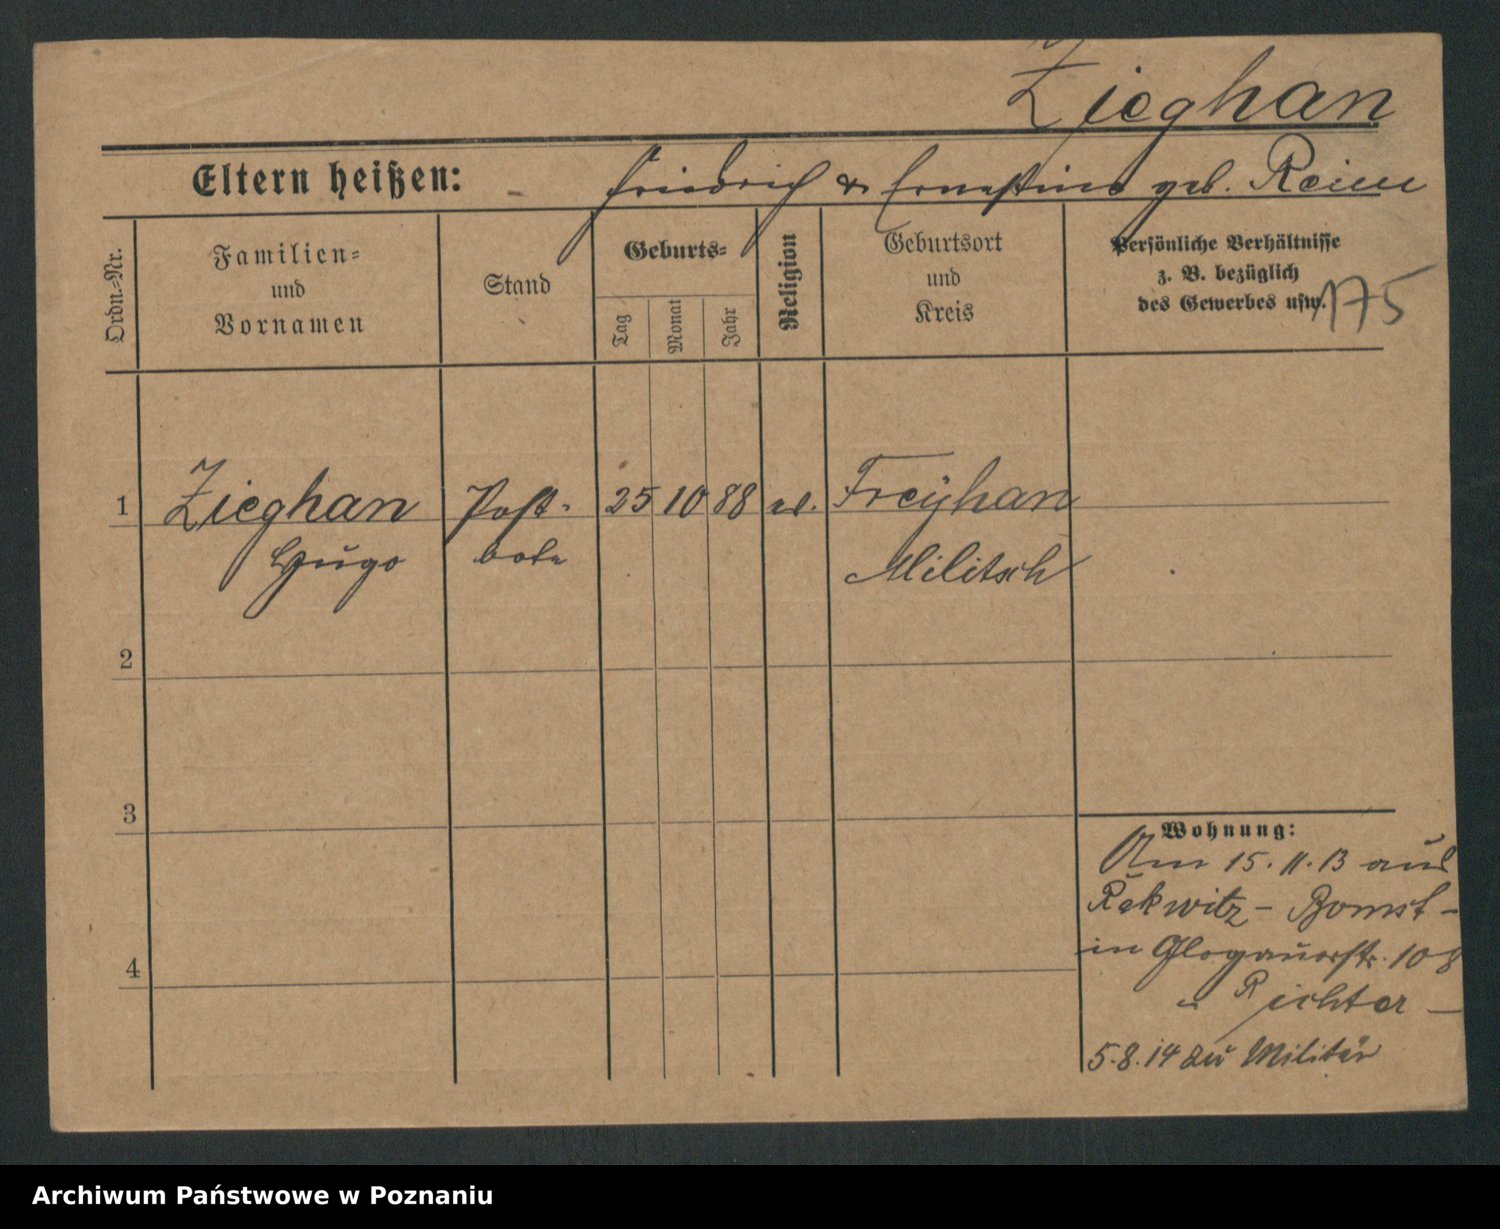 Zieghan
Eltern heißen: Friedrich & Ernestine geb.
Ordn.-Nr.
Familien- und Vornamen
Stand
Geburts-
Tag
Monat
Jahr
Religion
Geburtsort und Kreis
Persönliche Verhältnisse
z. B. bezüglich
des Gewerbes usw.
175
1 Zieghan Post- 25 10 88 ev. Freyhan
Hugo bote Militsch
2
3
Wohnung:
Am 15.11.13 aus
Rakwitz - Bomst -
in Glogauerstr. 108
Richter -
4
5.8.14 zu Militär
Archiwum Państwowe w Poznaniu